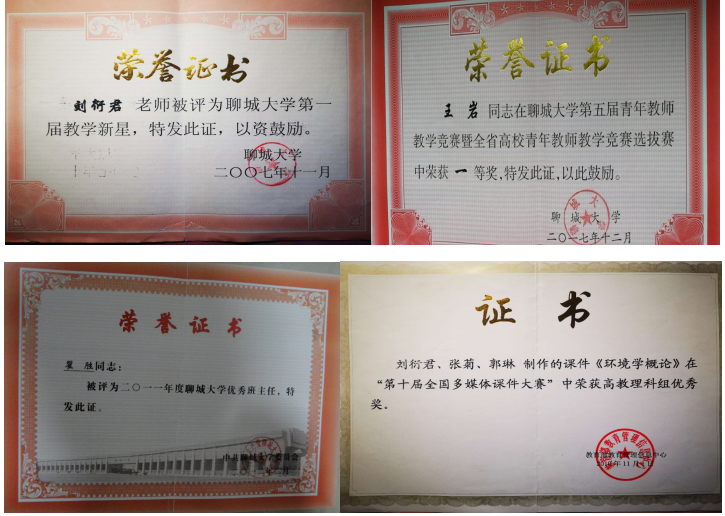 荣誉证书
刘衍君 老师被评为聊城大学第一
届教学新星，特发此证，以资鼓励。
聊城大学
二〇〇七年十一月
荣誉证书
王岩 同志在聊城大学第五届青年教师
教学竞赛暨全省高校青年教师教学竞赛选拔赛
中荣获 一 等奖，特发此证，以此鼓励。
聊城大学
二〇一七年十二月
荣誉证书
同志：
被评为二〇一一年度聊城大学优秀班主任，特
发此证。
中共聊城大学委员会
证书
刘衍君、张菊、郭琳 制作的课件《环境学概论》在
“第十届全国多媒体课件大赛”中荣获高教理科组优秀
奖。
教育部教育管理信息中心